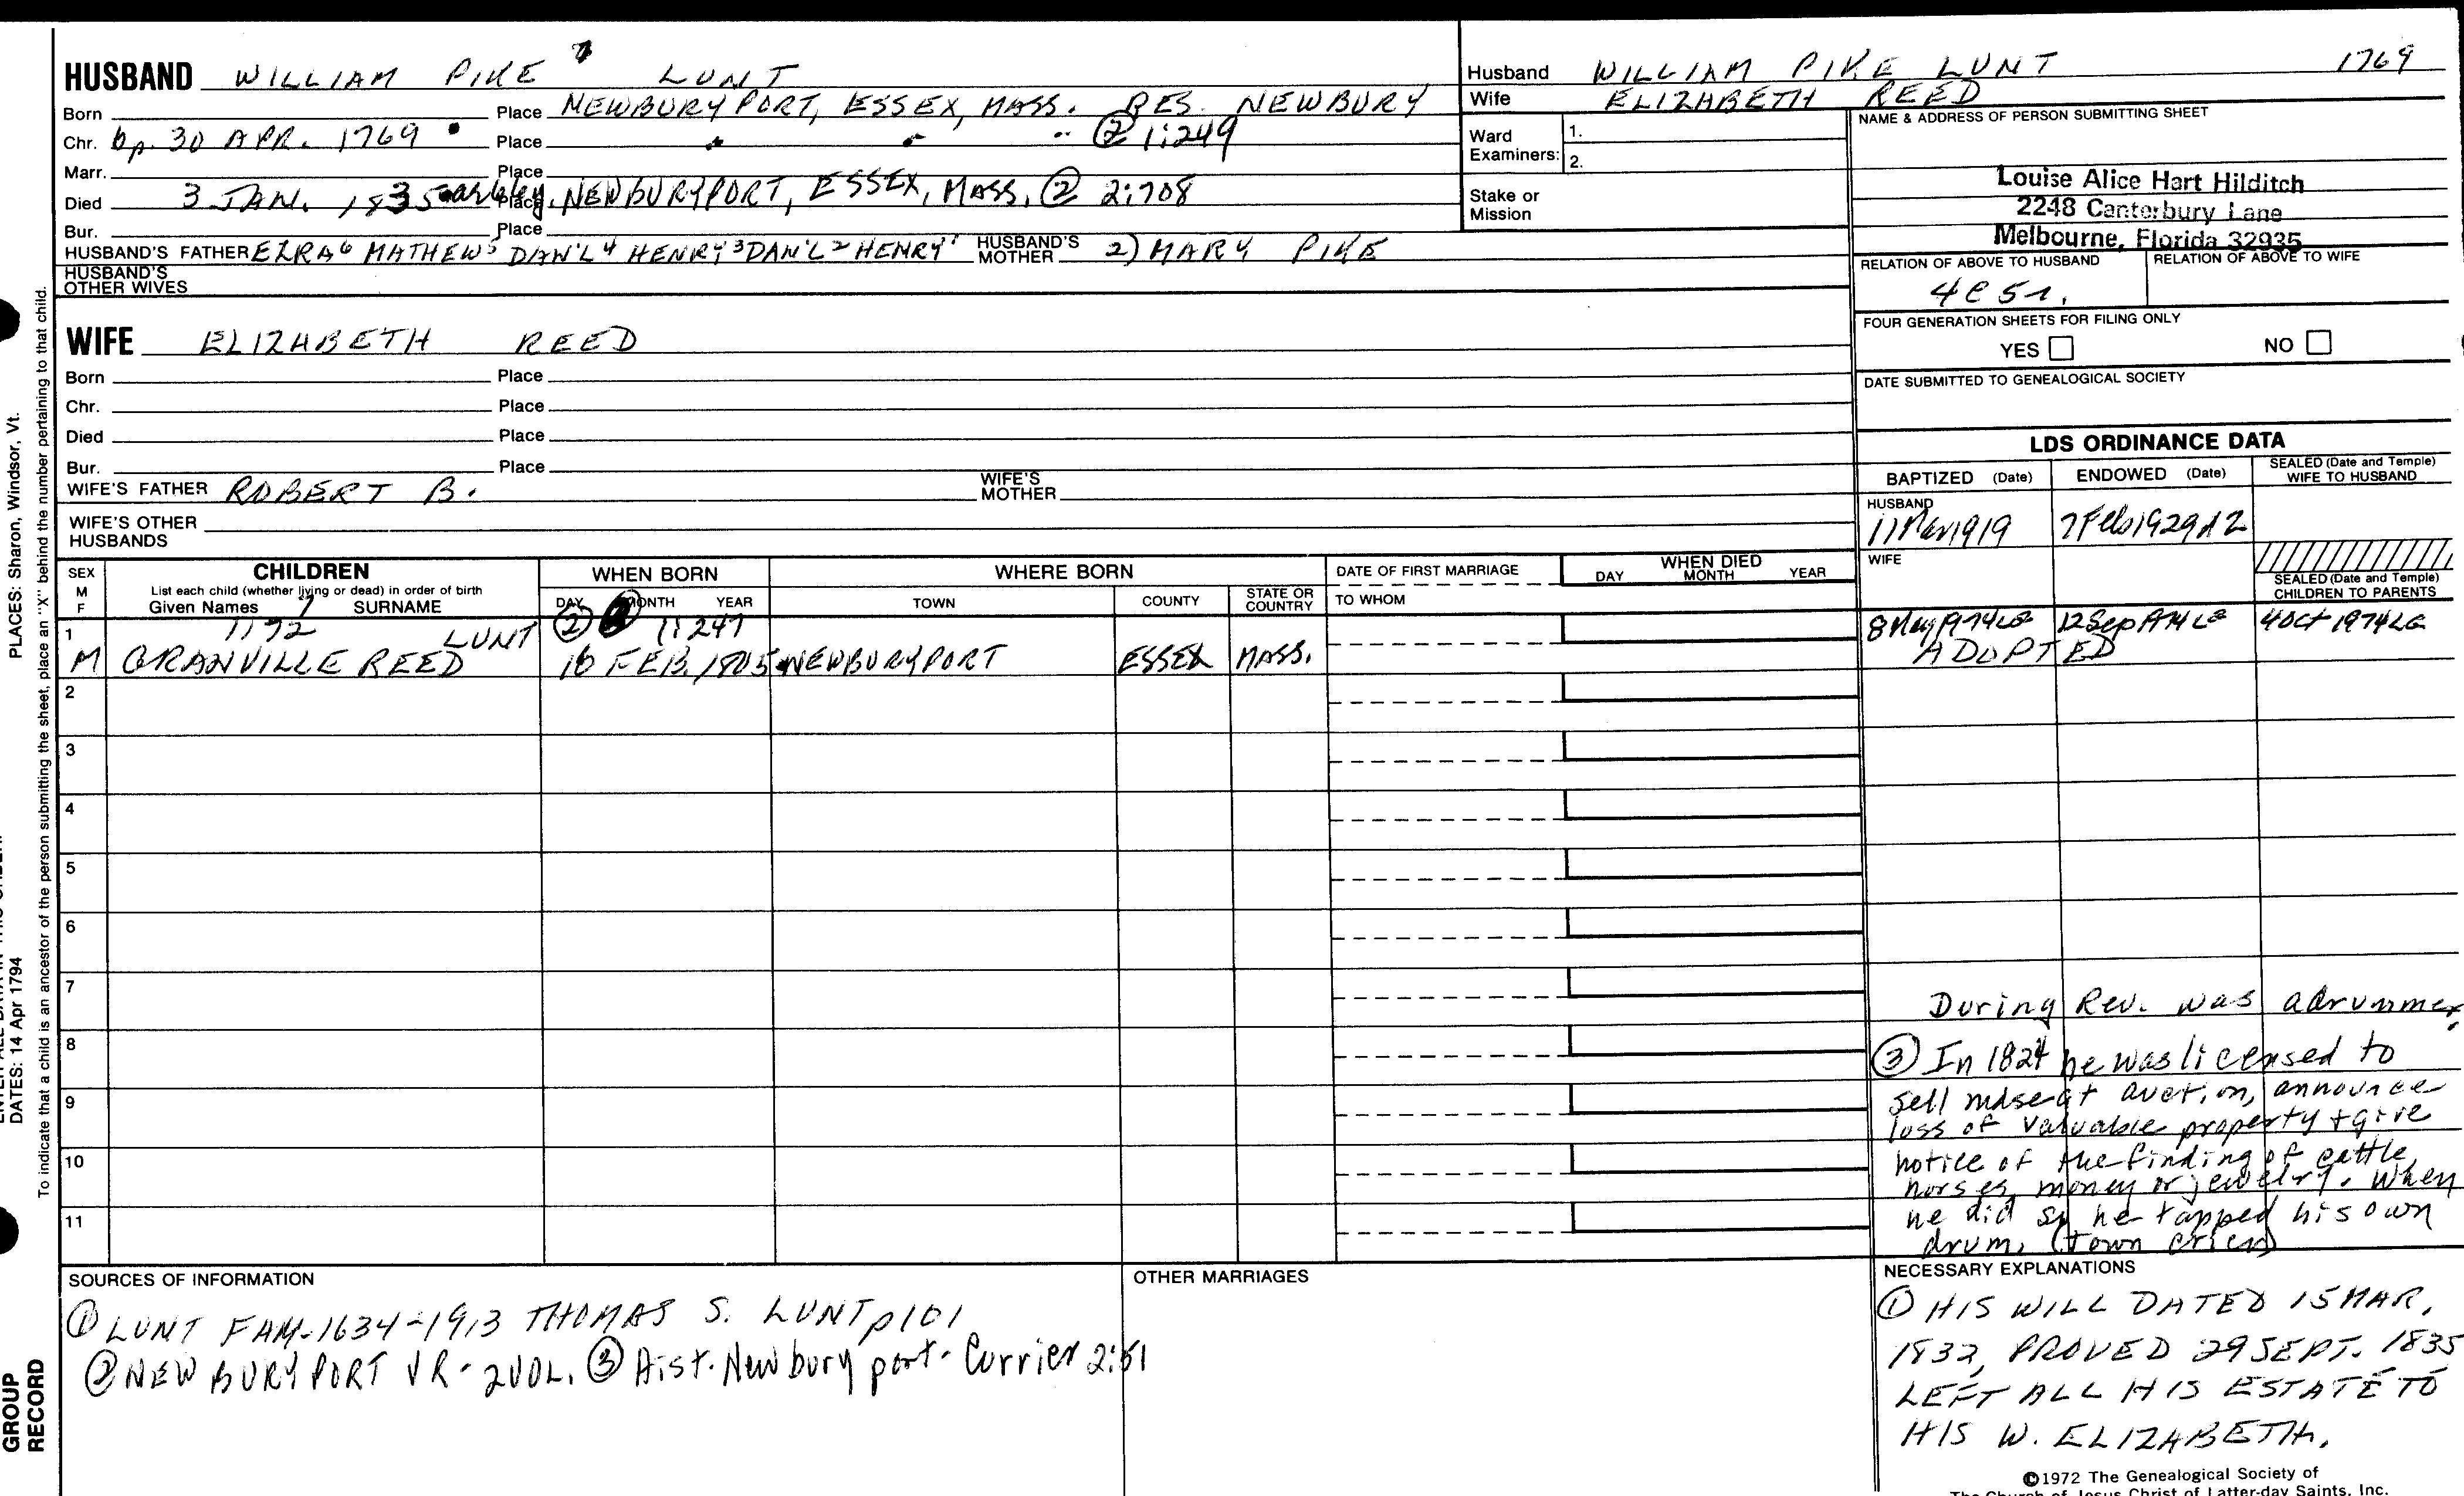 HUSBAND WILLIAM PIKE 7 LUNT
Born Place NEWBURYPORT, ESSEX, MASS. RES. NEWBURY
Chr. bp. 30 APR. 1769 Place " " " ② 1:249
Marr. Place
Died 3 JAN. 1835 Place NEWBURYPORT, ESSEX, MASS. ② 2:708
Bur. Place
HUSBAND'S FATHER EZRA6 MATHEW5 DAN'L4 HENRY3 DAN'L2 HENRY1 HUSBAND'S MOTHER 2) MARY PIKE
HUSBAND'S OTHER WIVES
Husband WILLIAM PIKE LUNT 1769
Wife ELIZABETH REED
Ward Examiners: 1.
2.
Stake or Mission
NAME & ADDRESS OF PERSON SUBMITTING SHEET
Louise Alice Hart Hilditch
2248 Canterbury Lane
Melbourne, Florida 32935
RELATION OF ABOVE TO HUSBAND RELATION OF ABOVE TO WIFE
WIFE ELIZABETH REED
Born Place
Chr. Place
Died Place
Bur. Place
WIFE'S FATHER ROBERT B. WIFE'S MOTHER
WIFE'S OTHER HUSBANDS
FOUR GENERATION SHEETS FOR FILING ONLY
YES NO
DATE SUBMITTED TO GENEALOGICAL SOCIETY
LDS ORDINANCE DATA
BAPTIZED (Date) ENDOWED (Date) SEALED (Date and Temple) WIFE TO HUSBAND
HUSBAND
11 Mar 1919 7 Feb 1929
WIFE
SEALED (Date and Temple) CHILDREN TO PARENTS
SEX M F CHILDREN WHEN BORN WHERE BORN DATE OF FIRST MARRIAGE WHEN DIED
List each child (whether living or dead) in order of birth
Given Names SURNAME DAY MONTH YEAR TOWN COUNTY STATE OR COUNTRY TO WHOM DAY MONTH YEAR
1 1192 LUNT ② 1:247 8 May 1974 LG 12 Sep 1974 LG 4 Oct 1974 LG
M GRANVILLE REED 16 FEB. 1805 NEWBURYPORT ESSEX MASS. ADOPTED
2
3
4
5
6
7
8
9
10
11
During Rev. was a drummer,
③ In 1824 he was licensed to
sell mdse at auction, announce
loss of valuable property + give
notice of the finding of cattle,
horses, money or jewelry. When
he did so he tapped his own
drum. (town crier)
SOURCES OF INFORMATION
① LUNT FAM-1634-1913 THOMAS S. LUNT p101
② NEWBURYPORT VR-2VOL. ③ Hist. Newburyport-Currier 2:61
OTHER MARRIAGES
NECESSARY EXPLANATIONS
① HIS WILL DATED 15 MAR,
1832, PROVED 29 SEPT. 1835
LEFT ALL HIS ESTATE TO
HIS W. ELIZABETH.
©1972 The Genealogical Society of
The Church of Jesus Christ of Latter-day Saints, Inc.
PLACES: Sharon, Windsor, Vt.
DATES: 14 Apr 1794
To indicate that a child is an ancestor of the person submitting the sheet, place an "X" behind the number pertaining to that child.
GROUP
RECORD